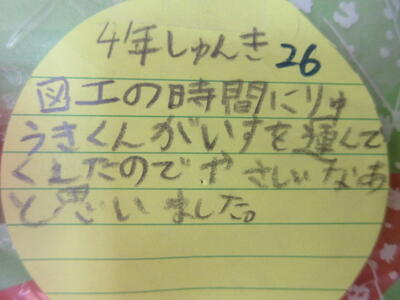 4年しゅんき 26
図工の時間にりゅ
うきくんがいすを運んで
くれたのでやさしいなあ
と思いました。